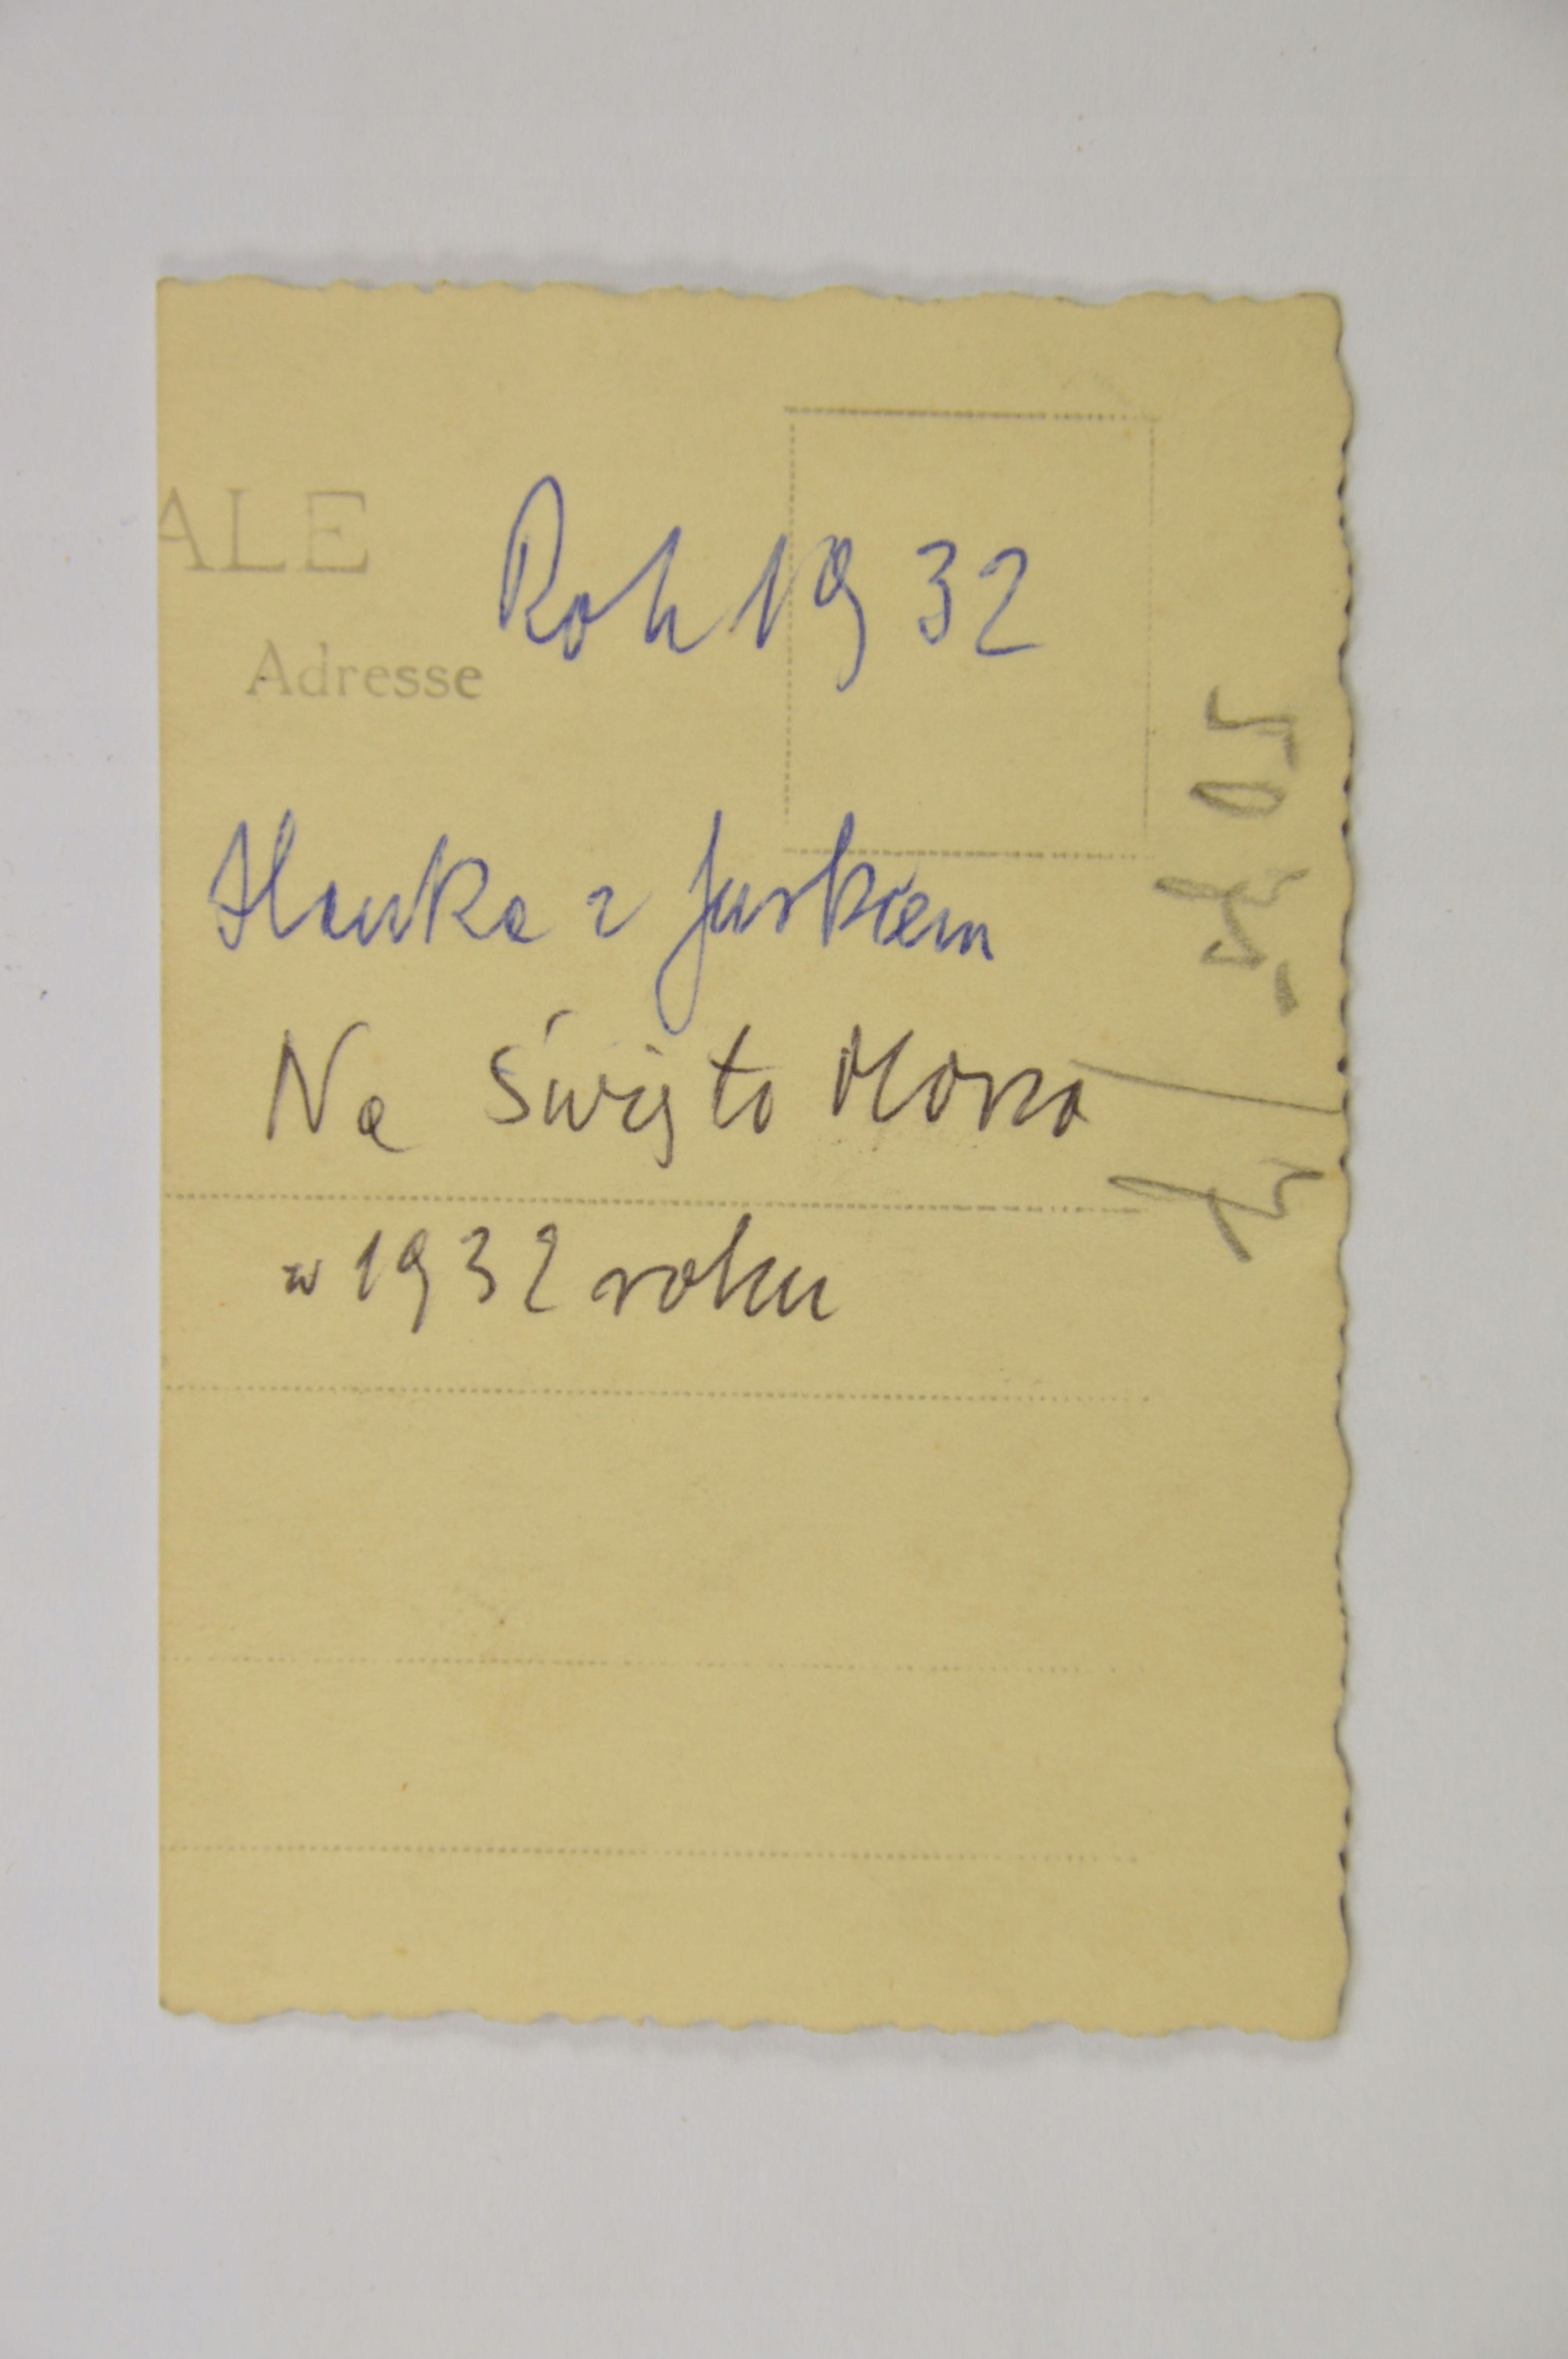 ALE
Rok 1932
Adresse
Hanka z Jurkiem
Na święto Morza
w 1932 roku